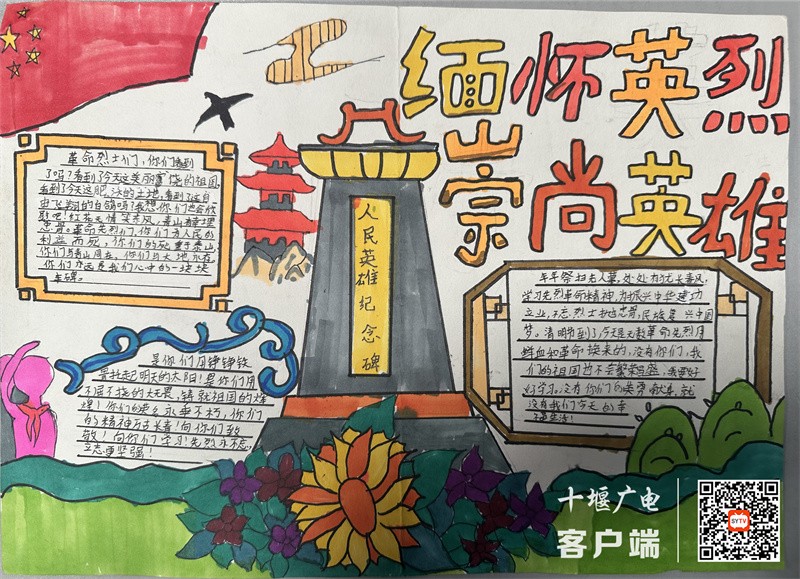 缅怀英烈
崇尚英雄
革命烈士们，你们看到
了吗？看到了今天这美丽富饶的祖国，
看到了今天这肥沃的土地，看到了这自
由飞翔的白鸽吗？我想，你们也会欣
慰吧！红花
思者。革命先烈们，你们为人民的
利益而死，你们的死重于泰山，
你们与青山同在，你们与大地永存，
你们永远是我们心中的一块块
丰碑。
人民英雄纪念碑
年年祭扫先人墓，处处犹长春风，
学习先烈革命精神，为振兴中华建功
立业，不忘烈士
梦。清明节到了今天是无数革命先烈用
鲜血和革命换来的，没有你们，我
们的祖国也不会繁荣昌盛，我要好
好学习。没有你们的英勇献身，就
没有我们今天的幸
福生活！
是你们用铮铮铁
骨托起明天的太阳！是你们用
不屈不挠的大无畏，铸就祖国的辉
煌！你们的使命永垂不朽，你们
的精神万古长青！向你们致
敬！向你们学习！先烈永不忘，
立志更坚强！
十堰广电
客户端
SYTV